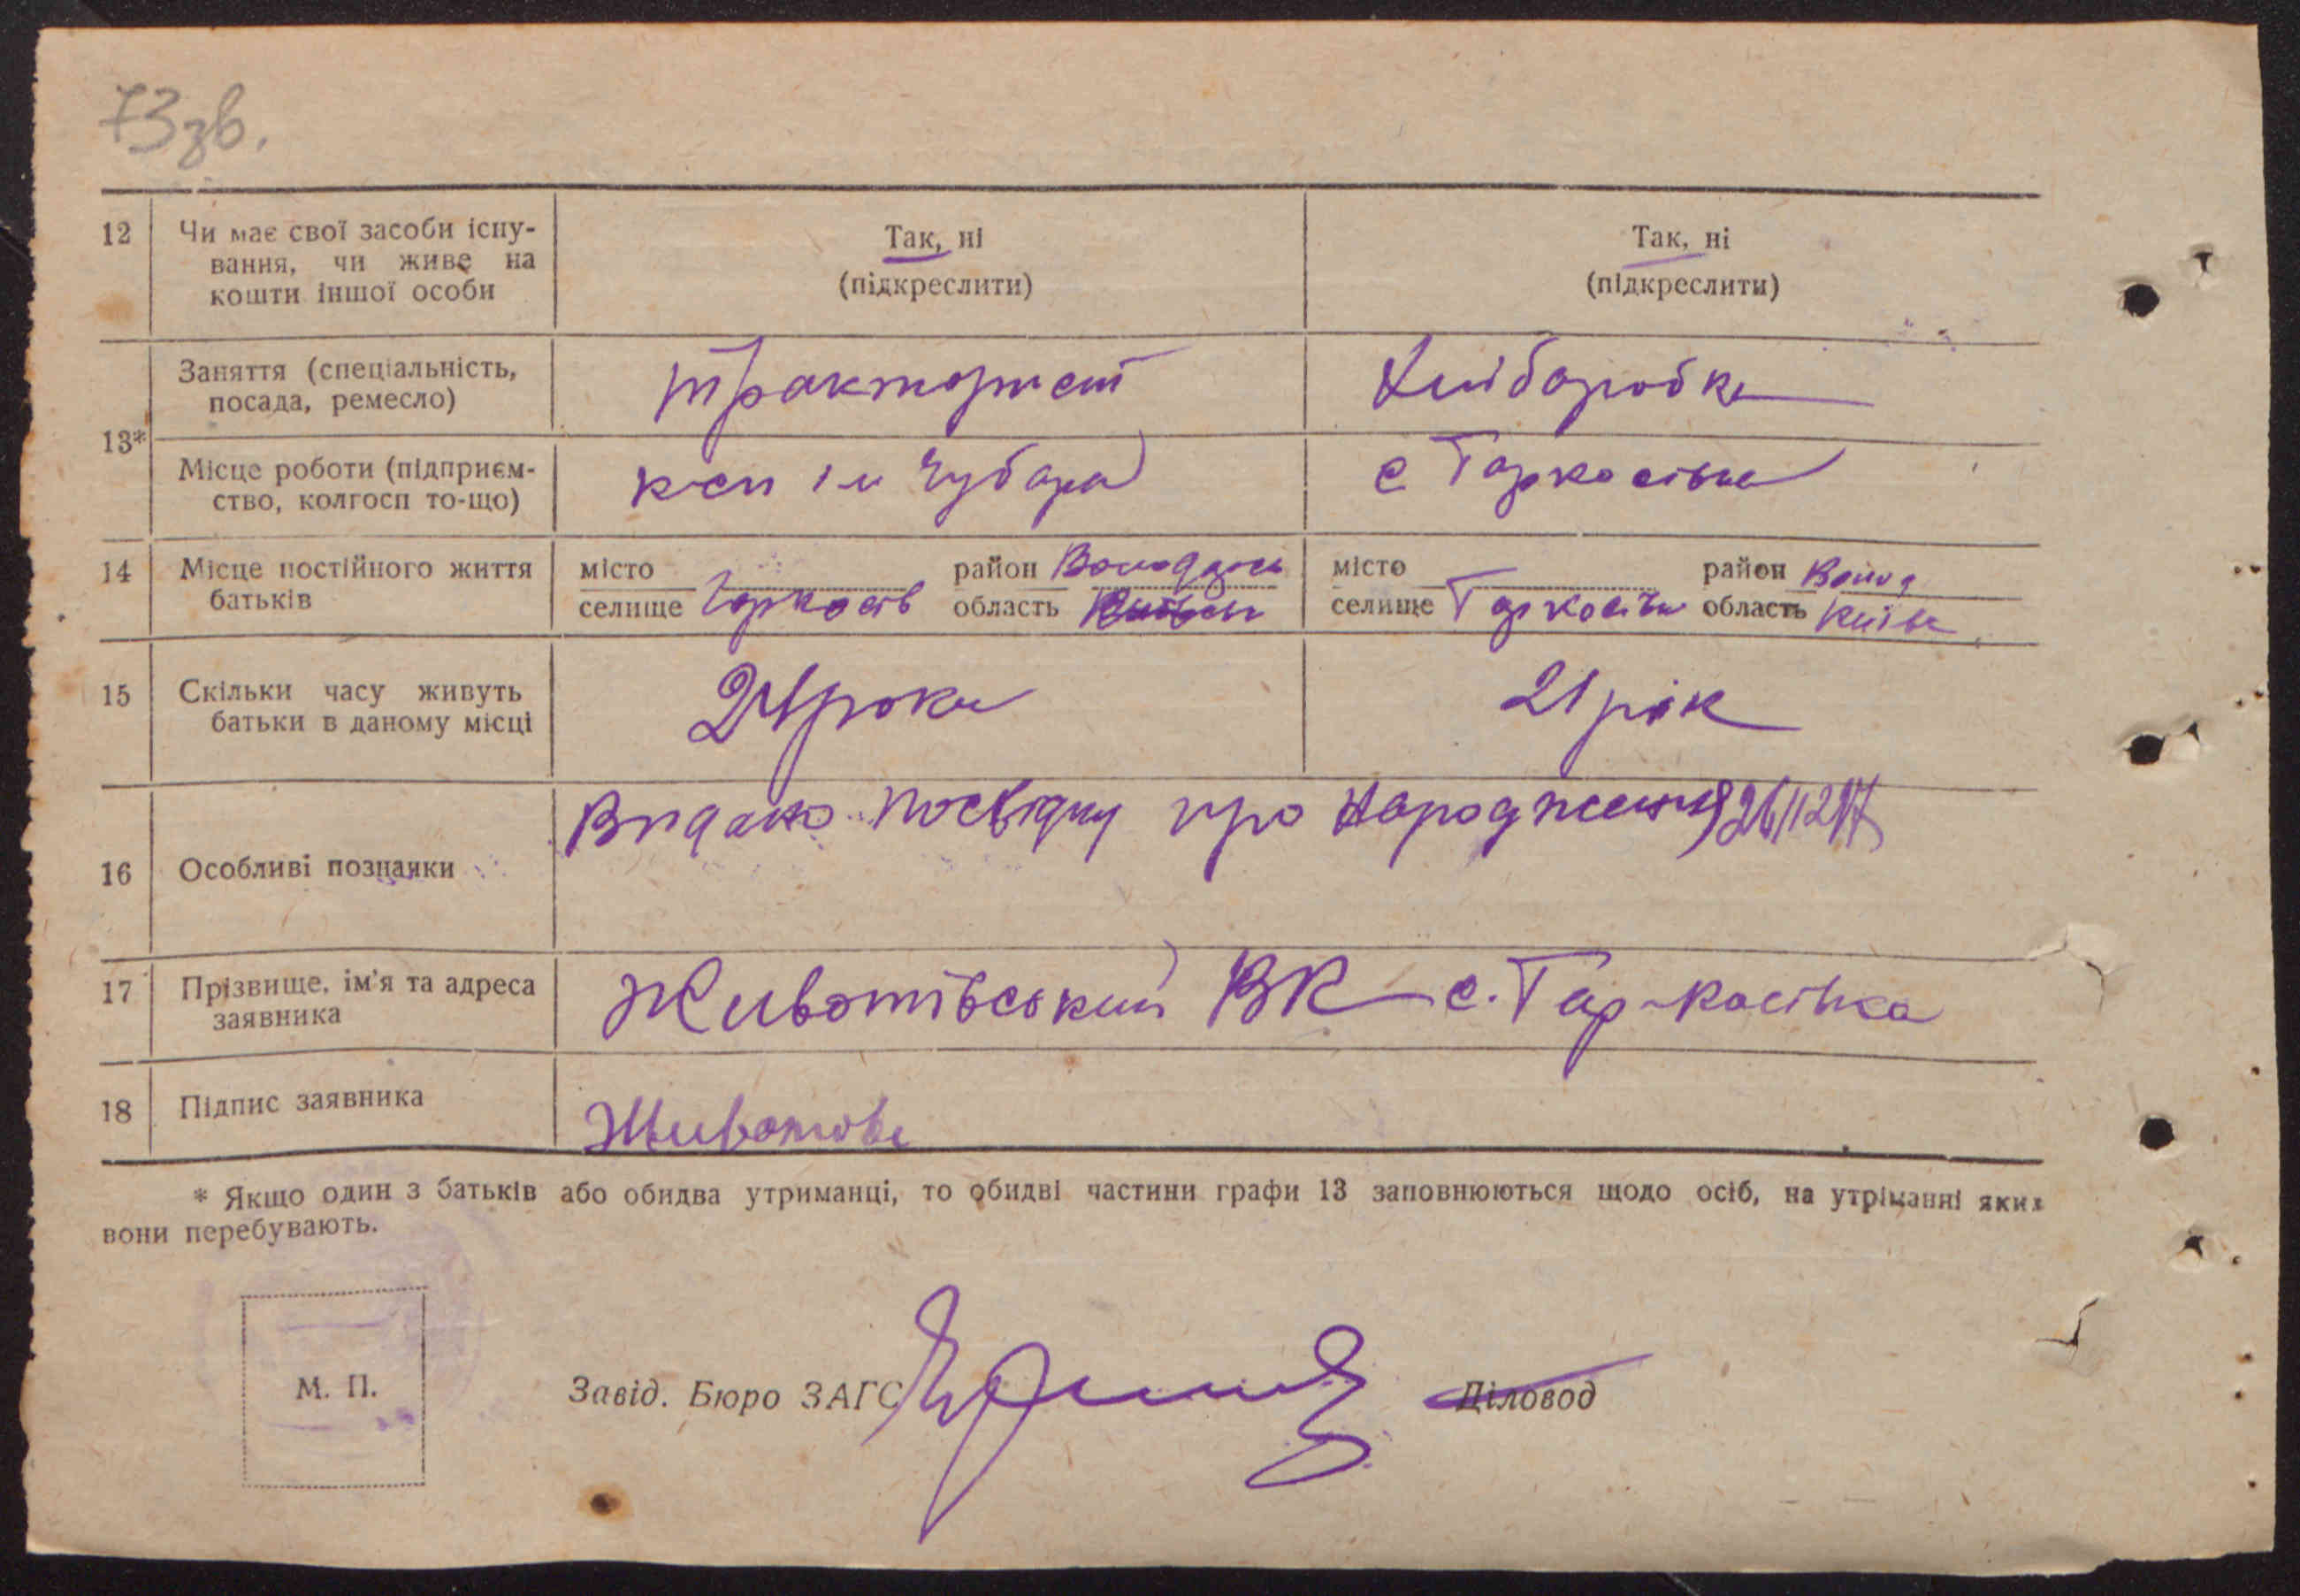 73 зв.
12 Чи має свої засоби існу-
вання, чи живе на
кошти іншої особи
Так, ні
(підкреслити)
Так, ні
(підкреслити)
13* Заняття (спеціальність,
посада, ремесло)
тракторист
Хліборобка
Місце роботи (підприєм-
ство, колгосп то-що)
к-сп ім Чубаря
с Гаркосівка
14 Місце постійного життя
батьків
місто
селище
район
область
місто
селище
район Волод
область Київс
15 Скільки часу живуть
батьки в даному місці
24 роки
21 рік
16 Особливі познаяки
Видано посвідку про народження
17 Прізвище, ім'я та адреса
заявника
Животівський ВК с. Гар-косівка
18 Підпис заявника
* Якщо один з батьків або обидва утриманці, то обидві частини графи 13 заповнюються щодо осіб, на утріманні яких
вони перебувають.
М. П.
Завід. Бюро ЗАГС
Діловод